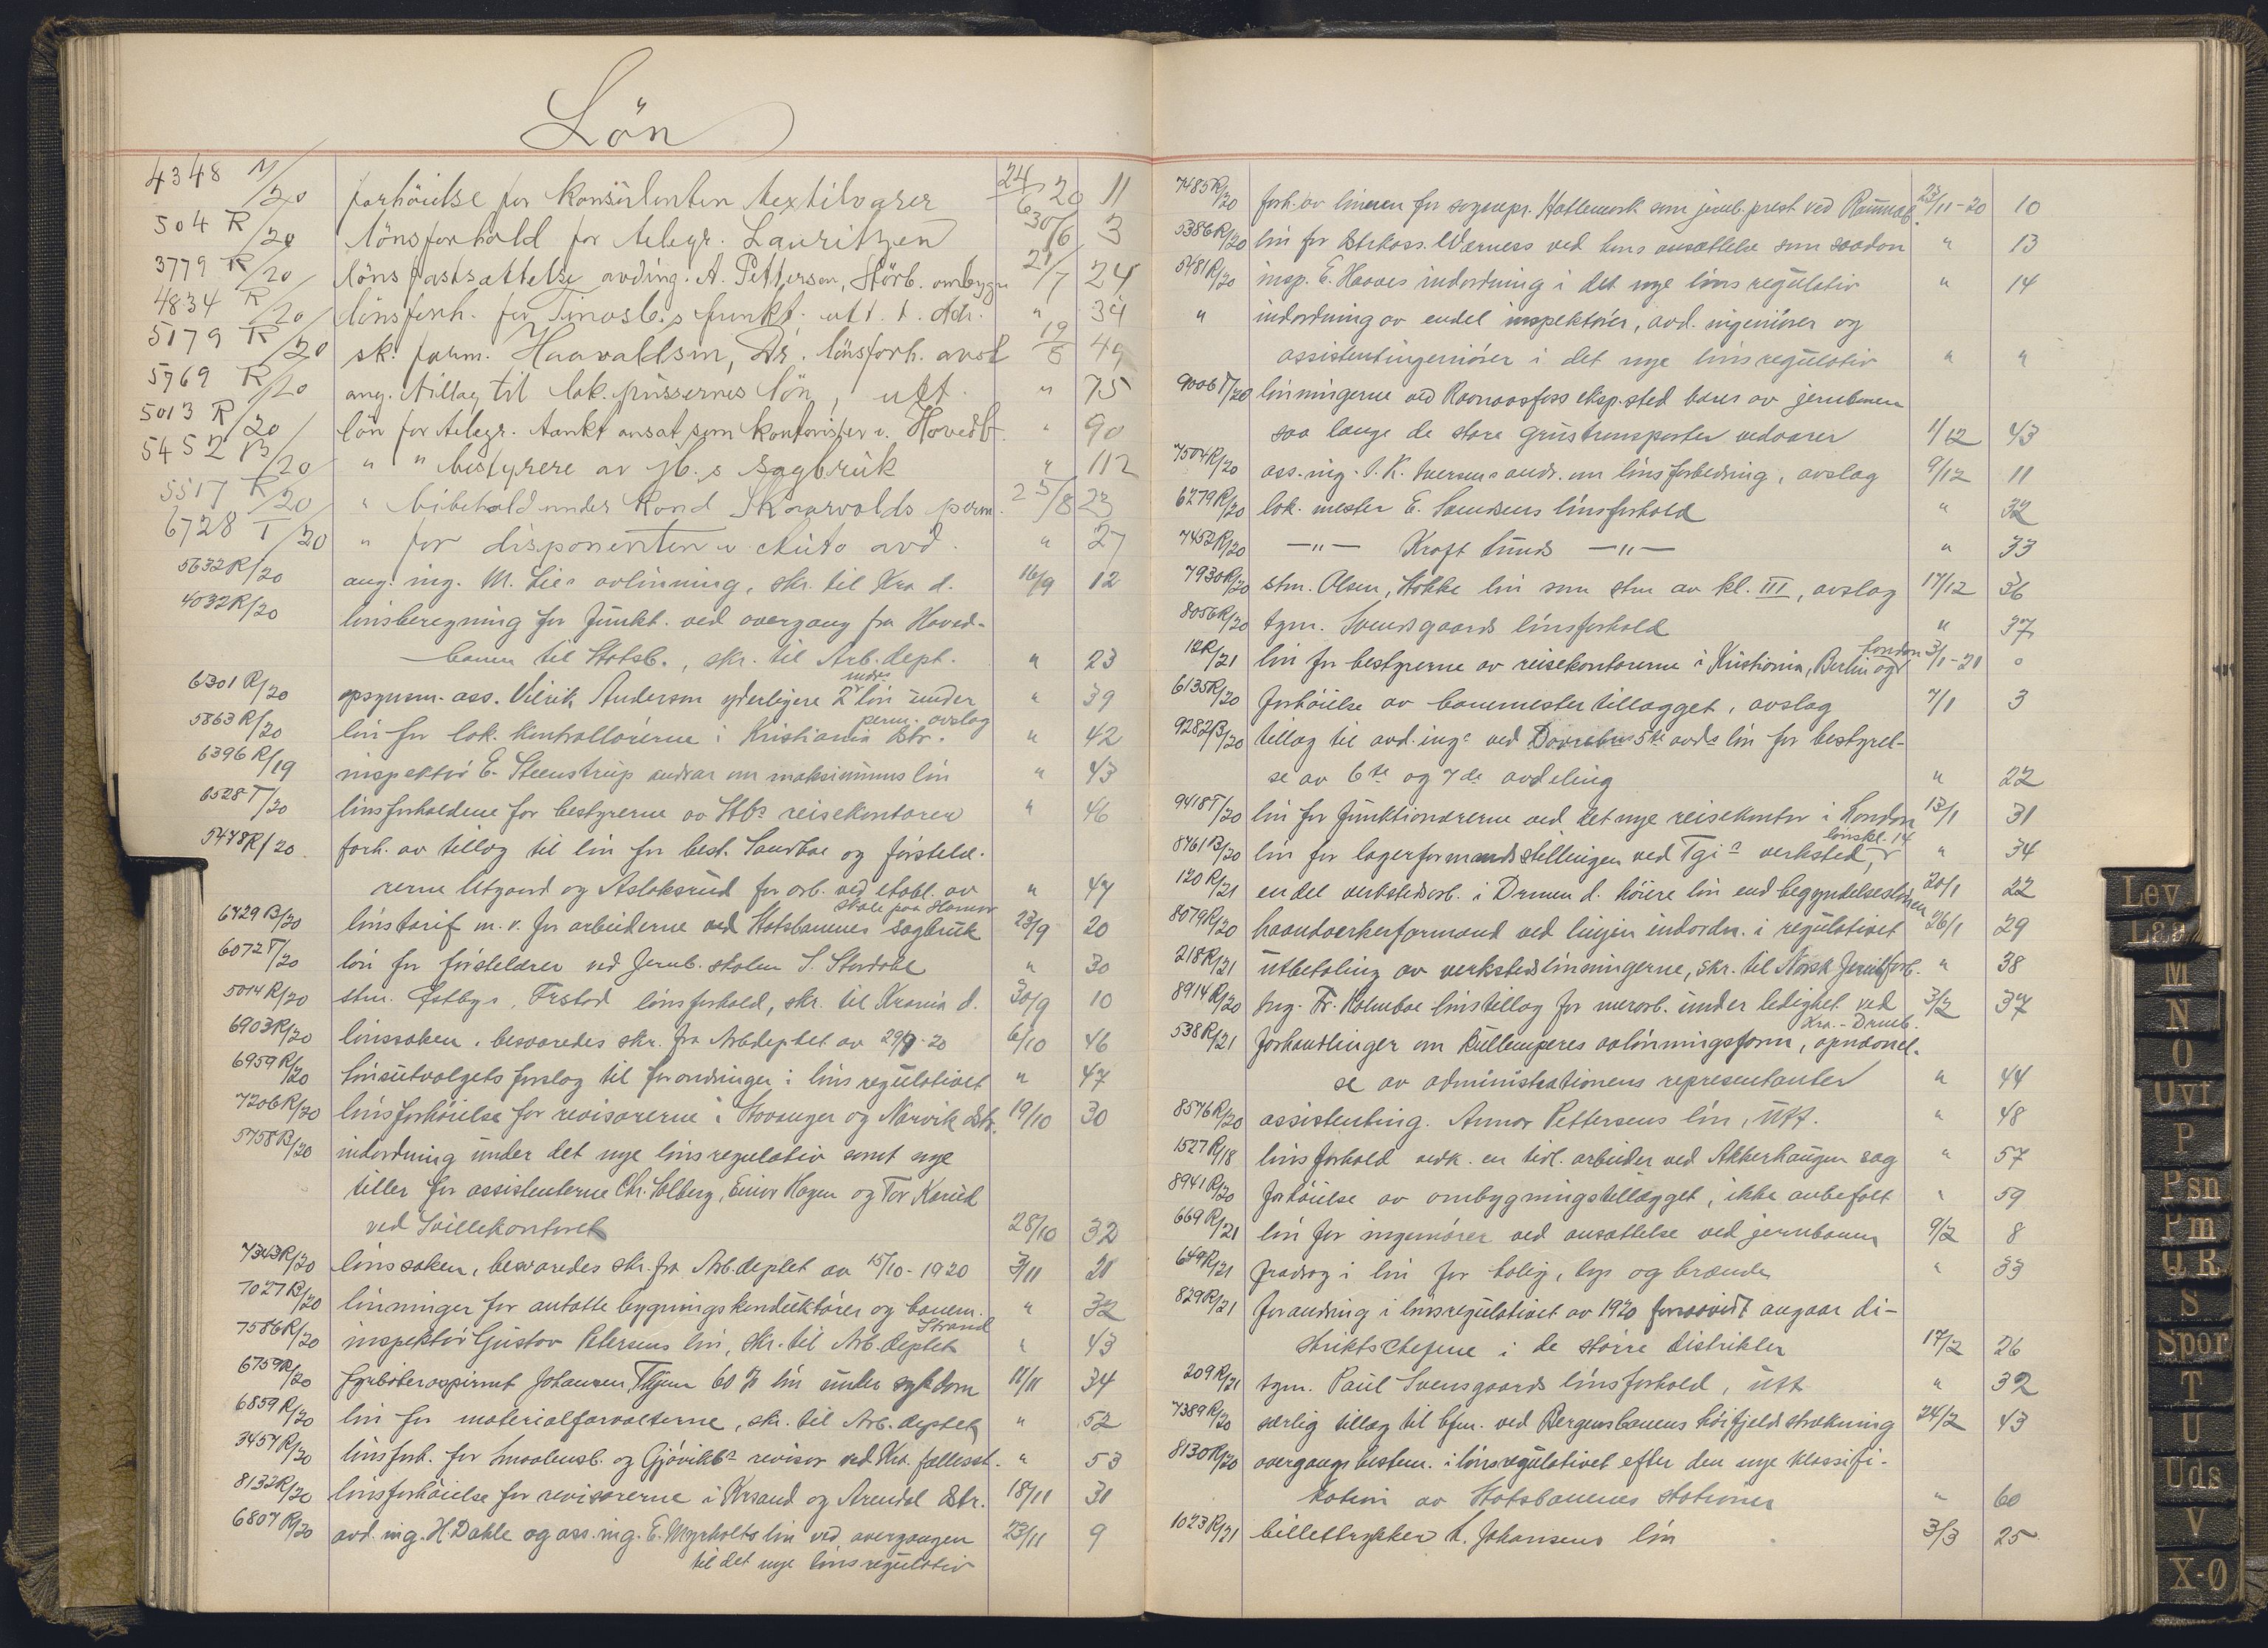 Lön
4348 M/20 forhöielse for konsulenten textilvarer 24/6 20 11
504 R/20 lönsforhold for telegr. Lauritzen 30/6 3
3779 R/20 löns fastsættelse avding. A. Petterson, Störb. ombygn 21/7 24
4834 R/20 lönsforh. for Tinosb.s funkt. utt. t. " 34
5179 R/20 sk. form. Haavaldsen, Dr. lönsforh. avsl 19/8 49
5769 R/20 ang. tillæg til lok. pussernes lön, utt. " 75
5013 R/20 lön for telegr. Aankt ansat som kontorist v. Hovedb. " 90
5452 B/20 " " bestyrere av jb.s sagbruk " 112
5517 R/20 " bibehold under Kond Skaarvolds perm. 25/8 23
6728 T/20 " for disponenten v Auto avd. " 27
5632R/20 ang. ing. M. Lies avlönning, skr. til Kra d. 16/9 12
4032R/20 lönsberegning for funkt. ved overgang fra Hoved-
banen til Statsb., skr. til Arb. dept. " 23
6301 R/20 opsynsm. ass. Vilrik Anderson yderligere 2 mdrs lön under perm. avslag " 39
5863 R/20 lön for lok. kontrollörerne i Kristiania Dstr. " 42
6396 R/19 inspektör E. Steenstrup andrar om maksimums lön " 43
6528 T/20 lönsforholdene for bestyrerne av Stbs reisekontorer " 46
5478R/20 forh. av tillæg til lön for best. Sandboe og förstelæ-
rerne Utgaard og Aslaksrud for arb. ved etabl. av skole paa Hamar " 47
6729 B/20 lönstarif m.v. for arbeiderne ved Statsbanenes sagbruk 23/9 20
6072 T/20 lön for förstelærer ved Jernb. skolen S. Stordahl " 30
5014 R/20 stm. Östbys, Frstad lönsforhold, skr. til Krania d. 30/9 10
6903R/20 lönssaken, besvaredes skr. fra Arbdeptet av 29/9-20 6/10 46
6959 R/20 Lönsutvalgets forslag til forandringer i lönsregulativet " 47
7206R/20 lönsforhöielse for revisorerne i Stavanger og Narvik dstr. 19/10 30
5758 B/20 indordning under det nye lönsregulativ samt nye
titler for assistenterne Chr. Solberg, Einar Hagen og Tor Karud
ved Svillekontoret 28/10 32
7343R/20 lönssaken, besvaredes skr. fra Arb.deptet av 15/10-1920 3/11 21
7027 B/20 lönninger for antatte bygningskonduktörer og banem. " 32
7586R/20 inspektör Gustav Petersens lön, skr. til Arb. deptet Strand " 43
6759R/20 fyrböteraspirant Johansen, Thjem 60 % lön under sykdom 11/11 34
6859 R/20 lön for materialforvalterne, skr. til Arb. deptet " 52
3457 R/20 lönsforh. for Smaalensb. og Gjövikbs revisor ved Kra. fællesst. " 53
8132R/20 lönsforhöielse for revisorerne i Krsand og Arendal Dstr. 18/11 31
6807 R/20 avd. ing. H. Dahle og ass. ing. E. Myrholts lön ved overgangen 23/11 9
til det nye lönsregulativ
7485R/20 forh. av lönnen for sognepr. Hattemark som jernb.prest ved Raumab. 23/11-20 10
5386R/20 lön for Dstrkass. Værness ved hans ansættelse som saadan " 13
5481R/20 insp. E. Haaves indordning i det nye löns regulativ " 14
" indordning av endel inspektörer, avd. ingeniörer og
assistentingeniörer i det nye lönsregulativ " "
9006 T/20 lönningerne ved Raanaasfoss eksp.sted bæres av jernbanen
saa længe de store grustransporter vedvarer 1/12 43
7504R/20 ass. ing. J. K. Iversens andr. om lönsforbedring, avslag 9/12 11
6279R/20 lok. mester E. Samsens lönsforhold " 32
7452R/20 —"— Kraft Lunds —"— " 33
7930R/20 stm. Olsen, Stokke lön som stm av kl. III, avslag 17/12 36
8056R/20 tgm. Svendsgaards lönsforhold " 37
12R/21 lön for bestyrerne av reisekontorerne i Kristiania, Berlin og London 3/1-21 0
6135R/20 forhöielse av banemestertillægget, avslag 7/1 3
9282B/20 tillæg til avd. ings ved Dovrebs 5te avds lön for bestyrel-
se av 6te og 7de avdeling " 22
9418T/20 lön for funktionærerne ved det nye reisekontor i London 13/1 31
8761 B/20 lön for lagerformandsstillingen ved Tgis verksted, lönskl. 14 " 34
120 R/21 endel verkstedsarb. i Drmen d. höiere lön end begyndelseslönnen 20/1 22
8079R/20 haandverkerformand ved linjen indordn. i regulativet 26/1 29
218R/21 utbetaling av verkstedslönningerne, skr. til Norsk Jernbforb. " 38
8914 R/20 Ing. Fr. Kolmboe lönstillæg for merarb. under ledighet ved Kra.-Drmb. 3/2 37
538 R/21 forhandlinger om kullempernes avlönningsform, opnævnel-
se av administrationens representanter " 44
8576 R/20 assistenting. Annar Pettersens lön, Utt. " 48
1527 R/18 lönsforhold vedk. en tidl. arbeider ved Akkerhaugen sag " 57
8941 R/20 forhöielse av ombygningstillægget, ikke anbefalt " 59
669 R/21 lön for ingeniörer ved ansættelse ved jernbanen 9/2 8
649R/21 fradrag i lön for bolig, lys og brænde " 33
829R/21 forandring i lönsregulativet av 1920 forsaavidt angaar di-
striktscheferne i de större distrikter 17/2 26
209 R/21 tgm. Paul Svensgaards lönsforhold, utt " 32
7389R/20 særlig tillæg til bfm. ved Bergensbanens höifjeldsstrækning 24/2 43
8130R/20 overgangsbestem. i lönsregulativet efter den nye klassifi-
kation av Statsbanenes stationer " 60
1023 R/21 billettrykker L. Johansens lön 3/3 25
Lev
Laa
M
N
O
Ovf
P
Psn
Pm
Q R
S
Spor
T
U
Uds
V
X-Ø